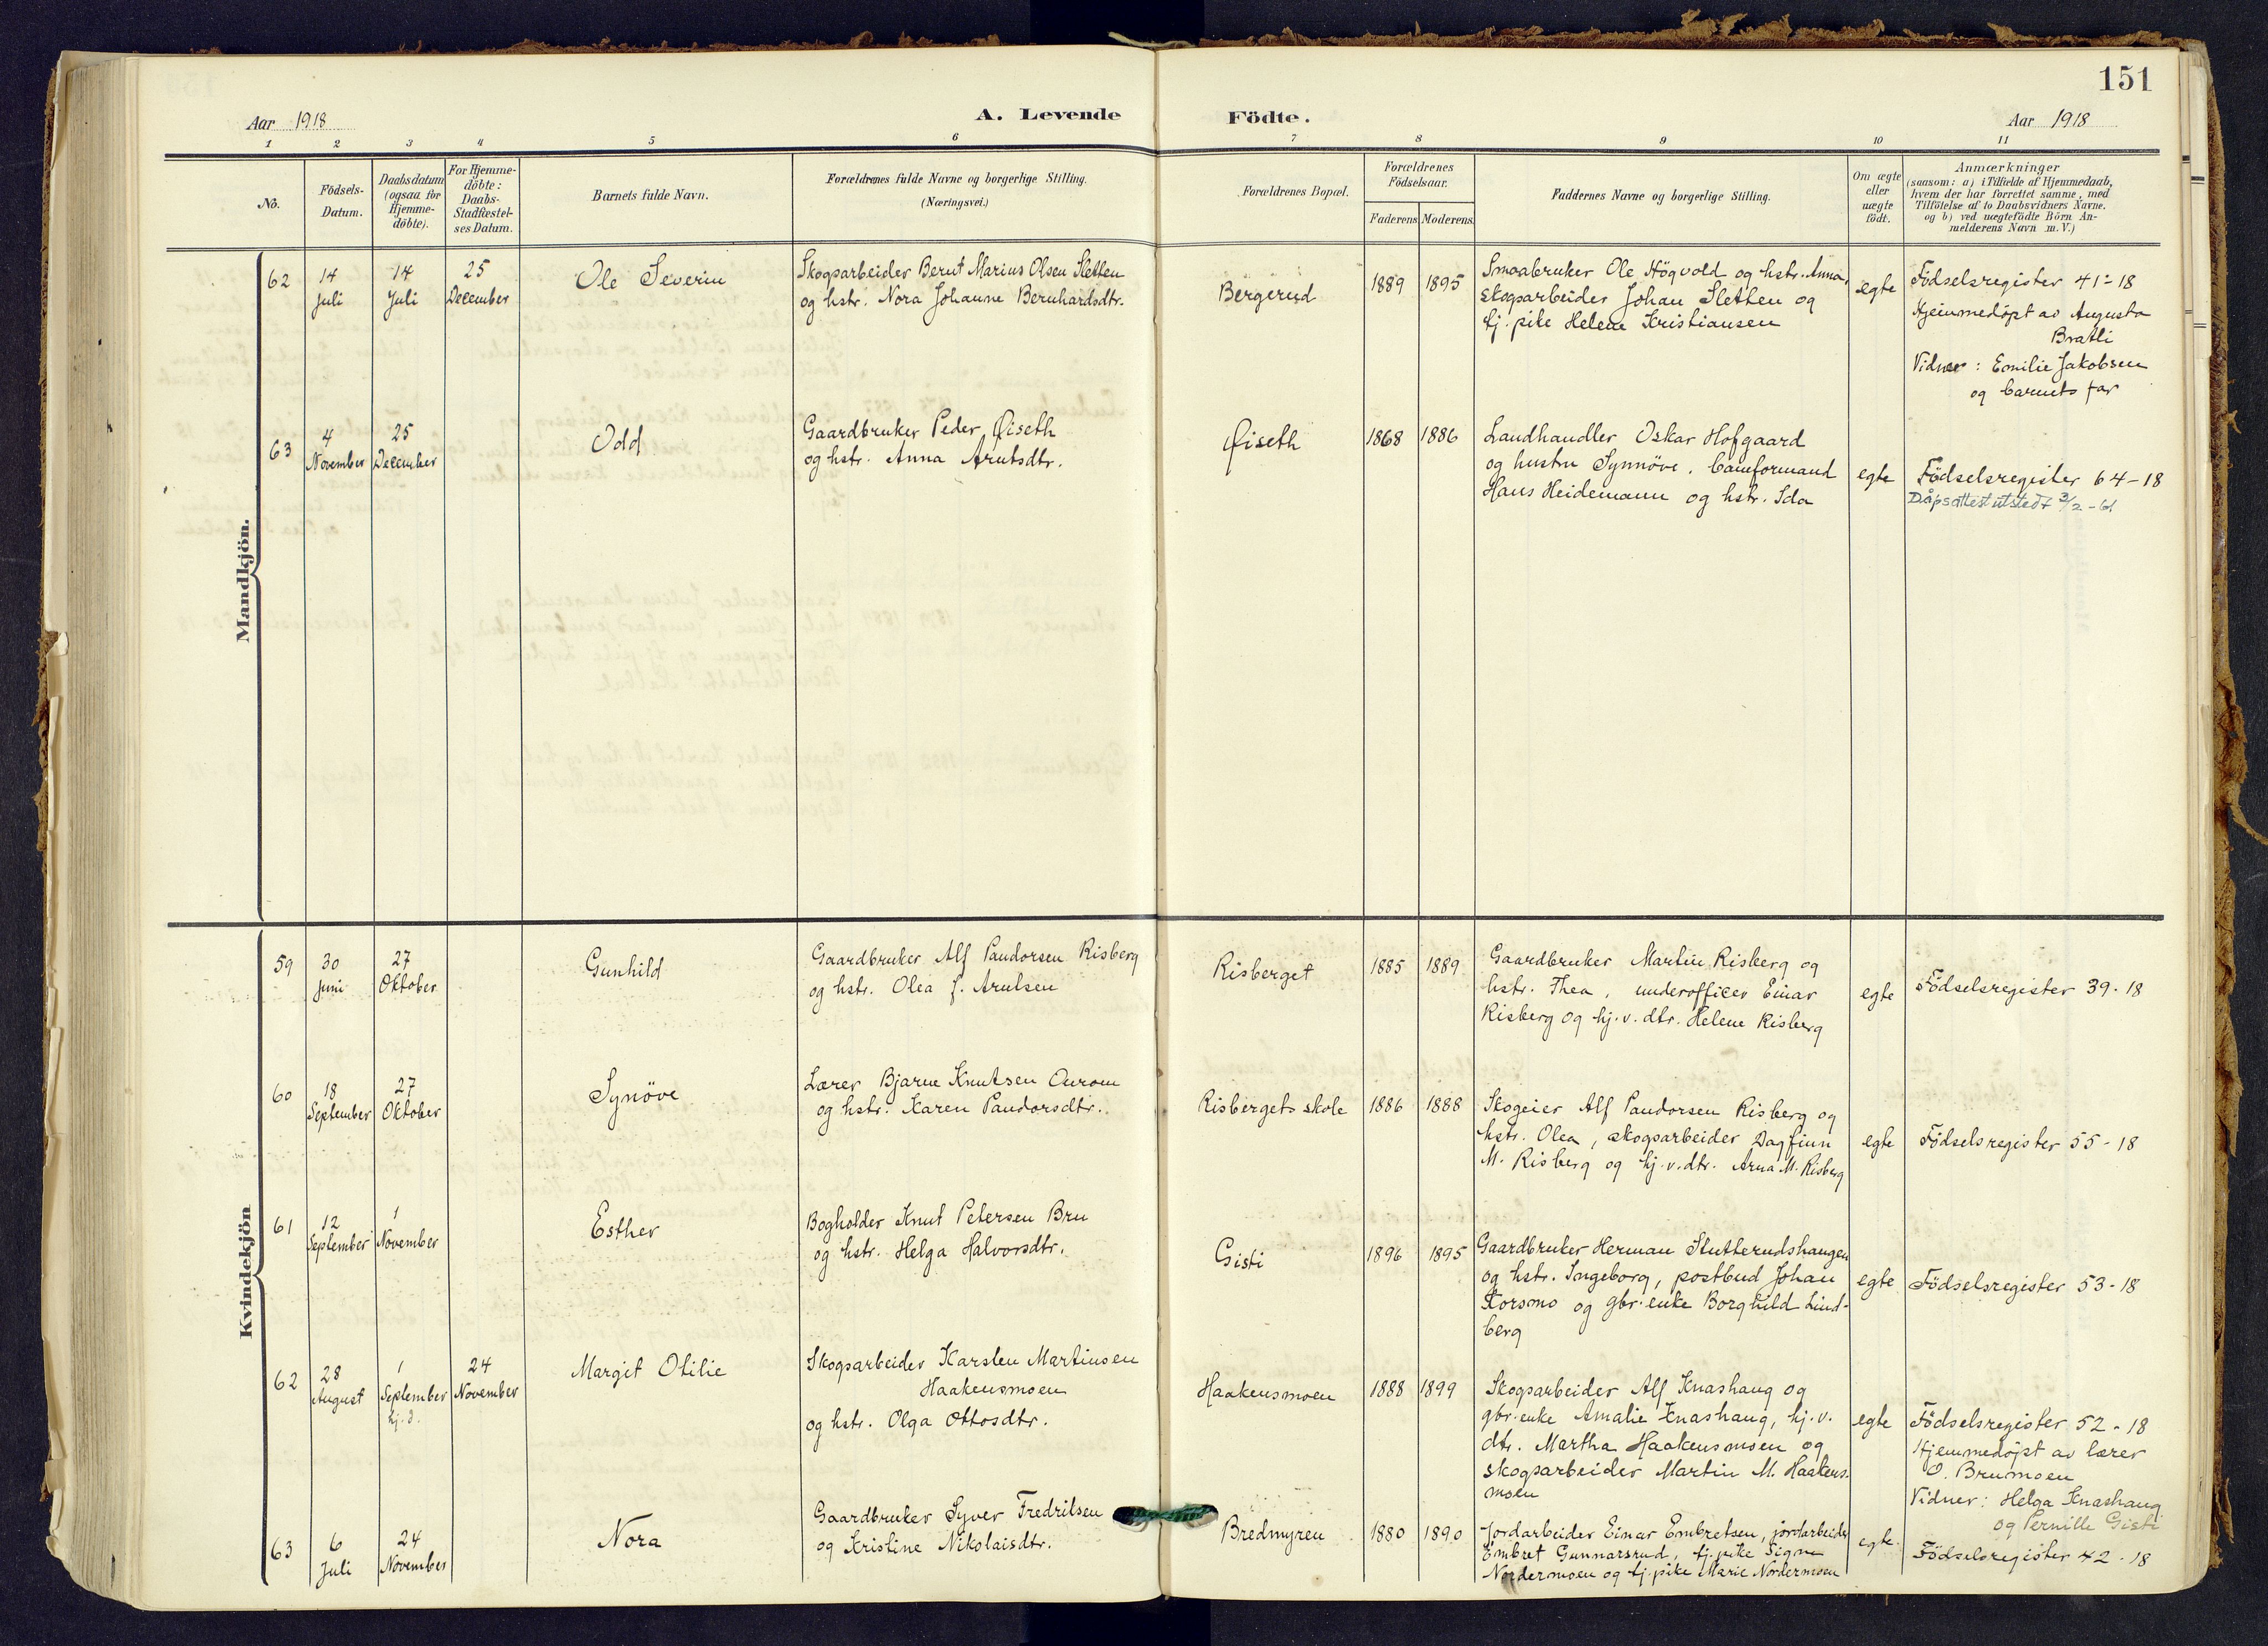 151
Aar 1918
A. Levende Födte.
Aar 1918
1 2 3 4 5 6 7 8 9 10 11
No.
Födsels-
Datum.
Daabsdatum
(ogsaa for
Hjemme-
döbte).
For Hjemme-
döbte:
Daabs-
Stadfæstel-
ses Datum.
Barnets fulde Navn.
Forældrenes fulde Navne og borgerlige Stilling.
(Næringsvei.)
Forældrenes Bopæl.
Forældrenes
Födselsaar.
Faderens Moderens
Faddernes Navne og borgerlige Stilling.
Om ægte
eller
uægte
födt.
Anmærkninger
(saasom: a) i Tilfælde af Hjemmedaab,
hvem der har forrettet samme, med
Tilföielse af to Daabsvidners Navne.
og b) ved uægtefödte Börn An-
melderens Navn m. V.)
Mandkjön.
62
14
Juli
14
Juli
25
December
Ole Severin
Skogsarbeider Bernt Marius Olsen Sletten
og hstr. Nora Johanne Bernhardsdtr.
Bergerud
1889
1895
Smaabruker Ole Högvold og hstr. Anna,
skogsarbeider Johan Sletten og
tj. pike Helene Kristiansen
egte
Födselsregister 41-18
Hjemmedöpt av Augusta
Bratli
Vidner: Emilie Jakobsen
og barnets far
63
4
November
25
December
Odd
Gaardbruker Peder Øiseth
og hstr. Anna Arntsdtr.
Øiseth
1868
1886
Landhandler Oskar Hofgaard
og hustru Synnöve, baneformand
Hans Heidemann og hstr. Ida
egte
Födselsregister 64-18
Dåpsattest utstedt 3/2-61
Kvindekjön
59
30
Juni
27
Oktober
Gunhild
Gaardbruker Alf Pandorsen Risberg
og hstr. Olea J. Arntsen
Risberget
1885
1889
Gaardbruker Martin Risberg og
hstr. Thea, underofficer Einar
Risberg og hj. v. dtr. Helene Risberg
egte
Födselsregister 39-18
60
18
September
27
Oktober
Synöve
Lærer Bjarne Knutsen Ourom
og hstr. Karen Pandorsdtr.
Risbergets skole
1886
1888
Skogeier Alf Pandorsen Risberg og
hstr. Olea, skogsarbeider Dagfinn
M. Risberg og hj. v. dtr. Arna M. Risberg
egte
Födselsregister 55-18
61
12
September
1
November
Esther
Bogholder Knut Petersen Bru
og hstr. Helga Halvorsdtr.
Gisti
1896
1895
Gaardbruker Herman Stutterudshaugen
og hstr. Ingeborg, postbud Johan
Korsmo og gbr. enke Borghild Lind-
berg
egte
Födselsregister 53-18
62
28
August
1
September
hj. d.
24
November
Margit Otilie
Skogsarbeider Karsten Martinsen
Haakensmoen
og hstr. Olga Ottosdtr.
Haakensmoen
1888
1899
Skogsarbeider Alf Knashaug og
gbr. enke Amalie Knashaug, hj. v.
dtr. Martha Haakensmoen og
skogsarbeider Martin M. Haakens-
moen
egte
Födselsregister 52-18
Hjemmedöpt av lærer
O. Brumoen
Vidner: Helga Knashaug
og Pernille Gisti
63
6
Juli
24
November
Nora
Gaardbruker Syver Fredriksen
og Kristine Nikolaisdtr.
Bredmyren
1880
1890
Jordarbeider Einar Embretsen, jordarbeider
Embret Gunnarsrud, tj. pike Signe
Nordermoen og tj. pike Marie Nordermoen
egte
Födselsregister 42-18